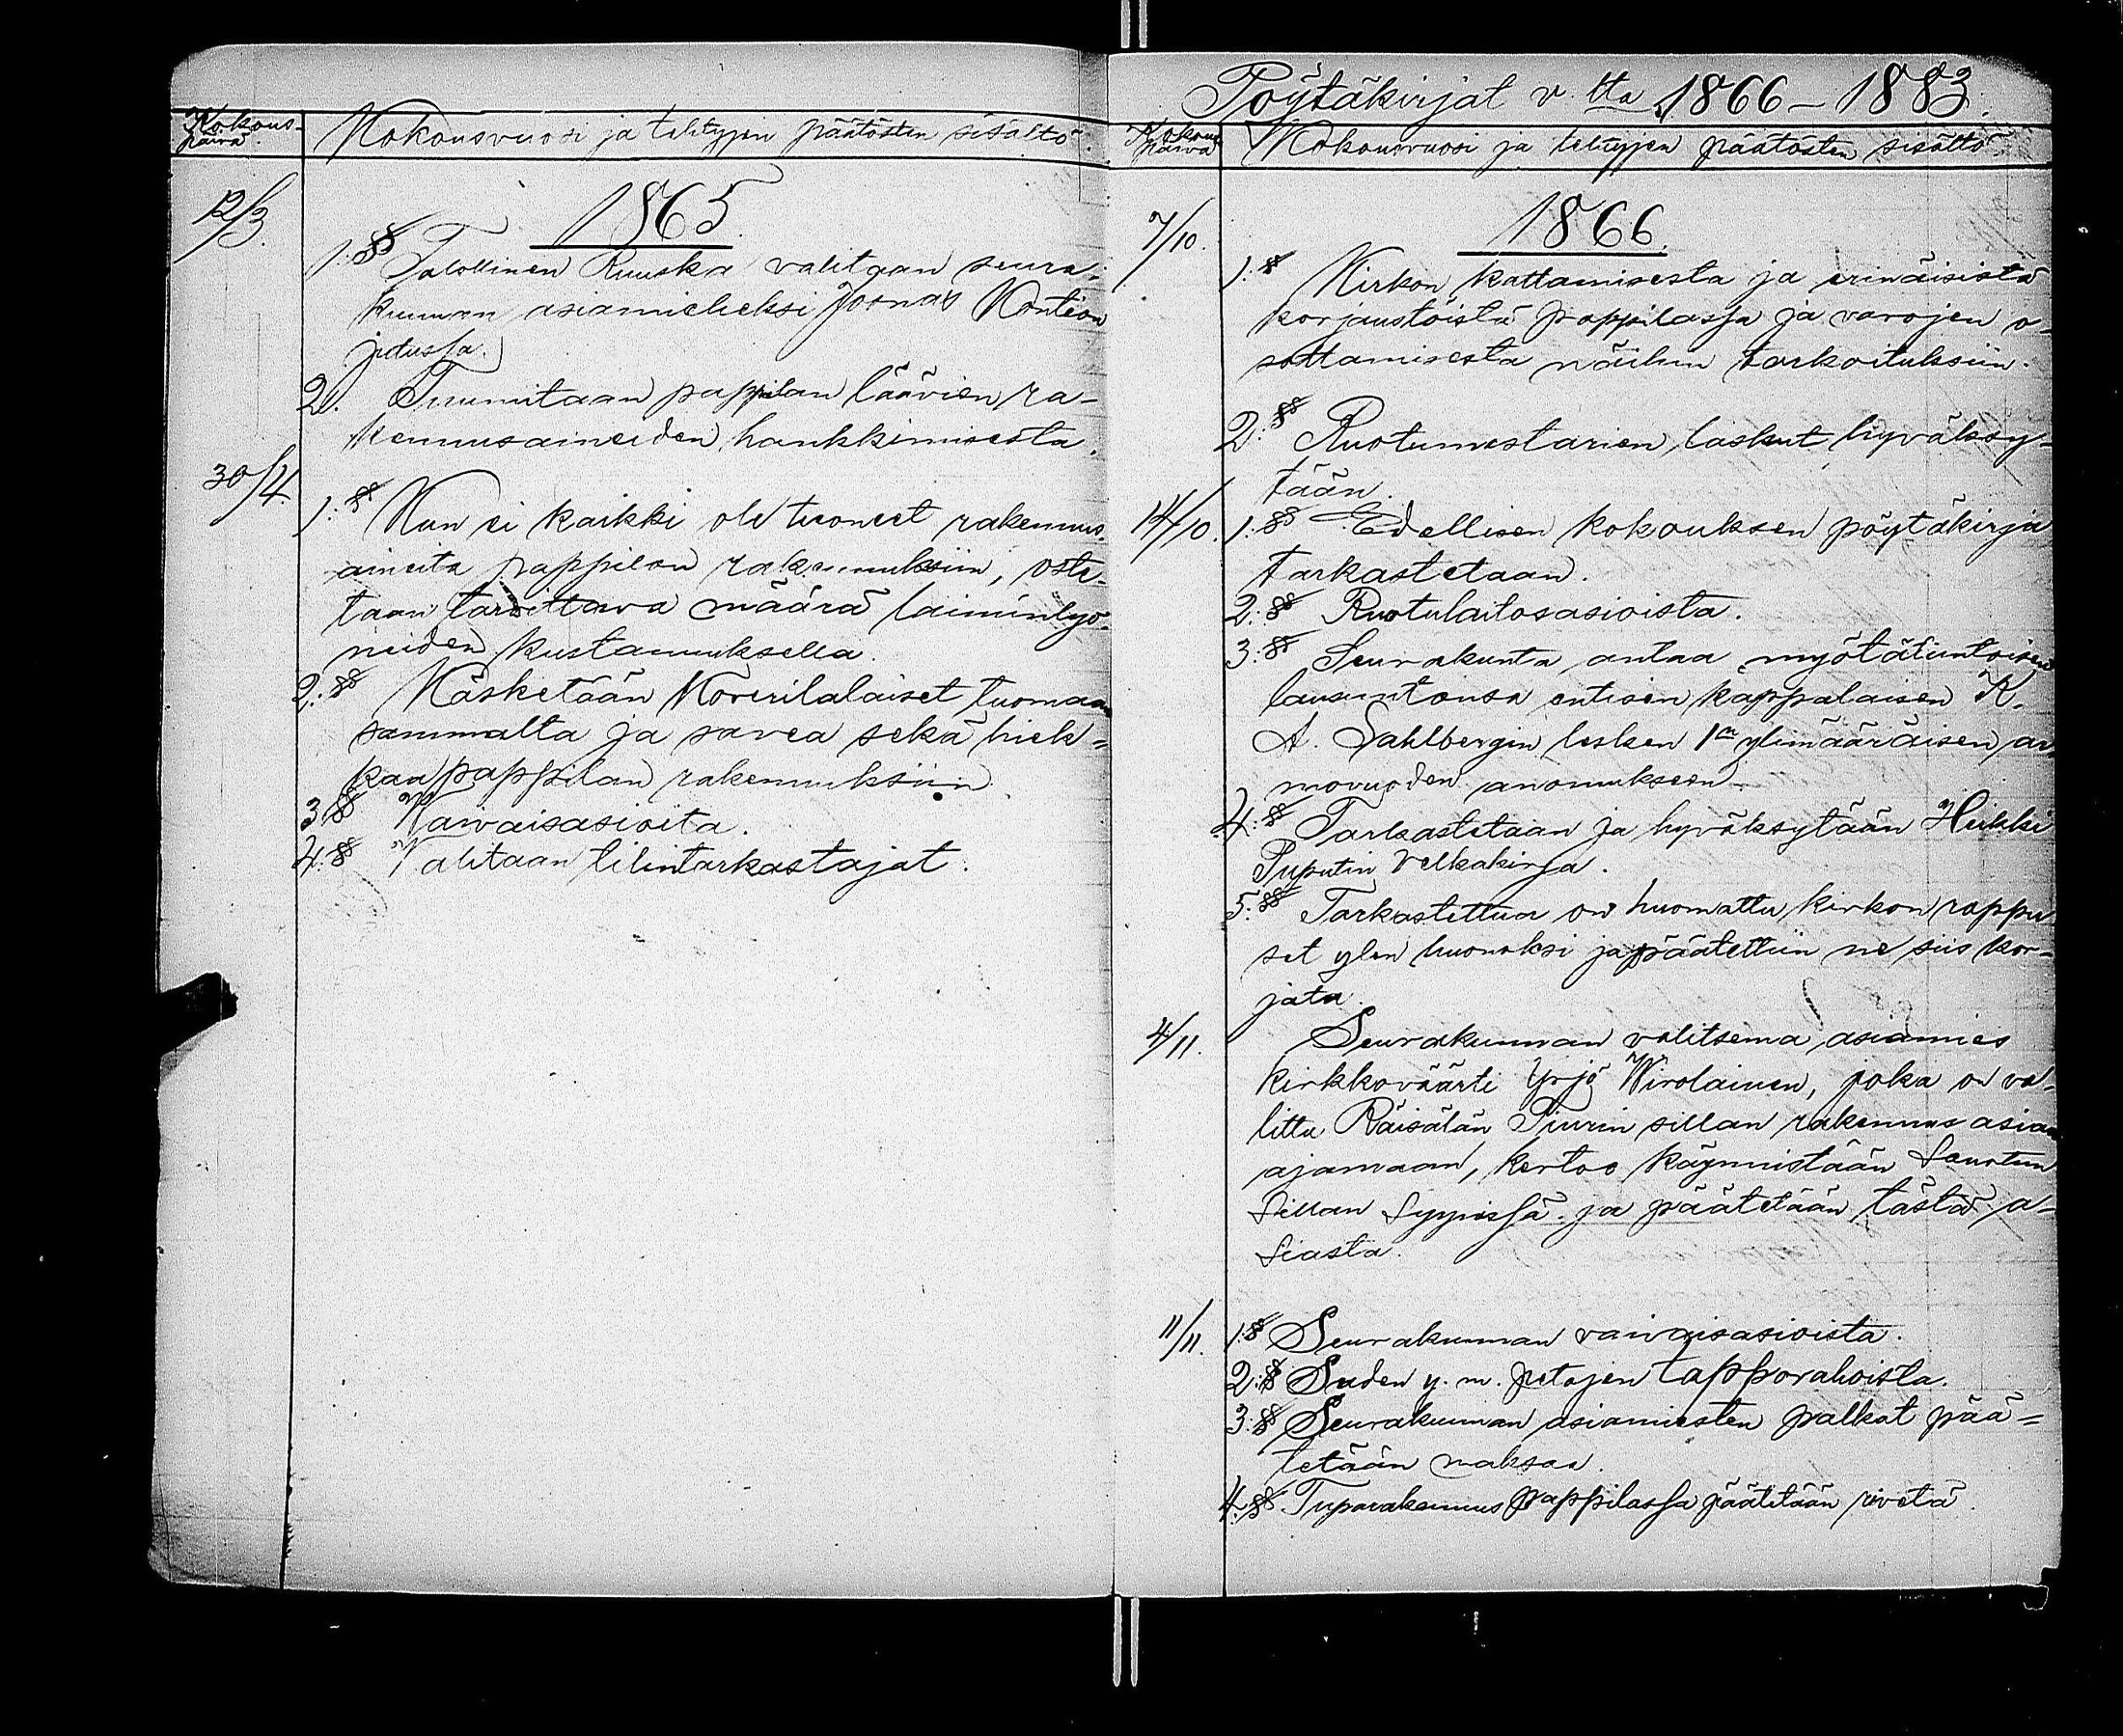 Kokous-
päivä.
Kokousvuosi ja tehtyjen päätösten sisältö.
12/3.
1865.
1:§ Talollinen Ruuska valitaan seura-
kunnan asiamieheksi Joonas Kontion
jutussa.
2. Tuumitaan pappilan läävien ra-
kennusaineiden hankkimisesta.
30/4.
1:§ Kun ei kaikki ole tuoneet rakennus-
aineita pappilan rakennuksiin, oste-
taan tarvittava määrä laiminlyö-
neiden kustannuksella.
2:§ Käsketään Koverilalaiset tuomaan
sammalta ja savea sekä hiek-
kaa pappilan rakennuksiin.
3:§ Vaivaisasioita.
4:§ Valitaan tilintarkastajat.
Pöytäkirjat v.tta 1866-1883.
Kokous
päivä
Kokousvuosi ja tehtyjen päätösten sisältö.
7/10.
1866.
1:§ Kirkon kattamisesta ja erinäisistä
korjaustöistä pappilassa ja varojen o-
sottamisesta näihin tarkoituksiin.
2:§ Ruotumestarien laskut hyväksy-
tään.
14/10. 1:§ Edellisen kokouksen pöytäkirja
tarkastetaan.
2:§ Ruotulaitosasioista.
3:§ Seurakunta antaa myötätuntoisen
lausuntonsa entisen kappalaisen K.
A. Sahlbergin lesken 1en ylimääräisen ar-
movuoden anomukseen.
4:§ Tarkastetaan ja hyväksytään Heikki
Puputin velkakirja.
5:§ Tarkastettua on huomattu kirkon rappu
set ylen huonoksi ja päätettiin ne siis kor-
jata.
4/11. Seurakunnan valitsema asiamies
kirkkoväärti Yrjö Wirolainen, joka on va-
littu Räisälän Tiurin sillan rakennus asiaa
ajamaan, kertoo käynnistään
Sillan Syynissä ja päätetään tästä a-
siasta.
11/11. 1:§ Seurakunnan vaivaisasioista.
2:§ Suden y. m. petojen tapporahoista.
3:§ Seurakunnan asiamiesten palkat pää-
tetään maksaa.
4:§ Tuparakennus pappilassa päätetään rivetä.